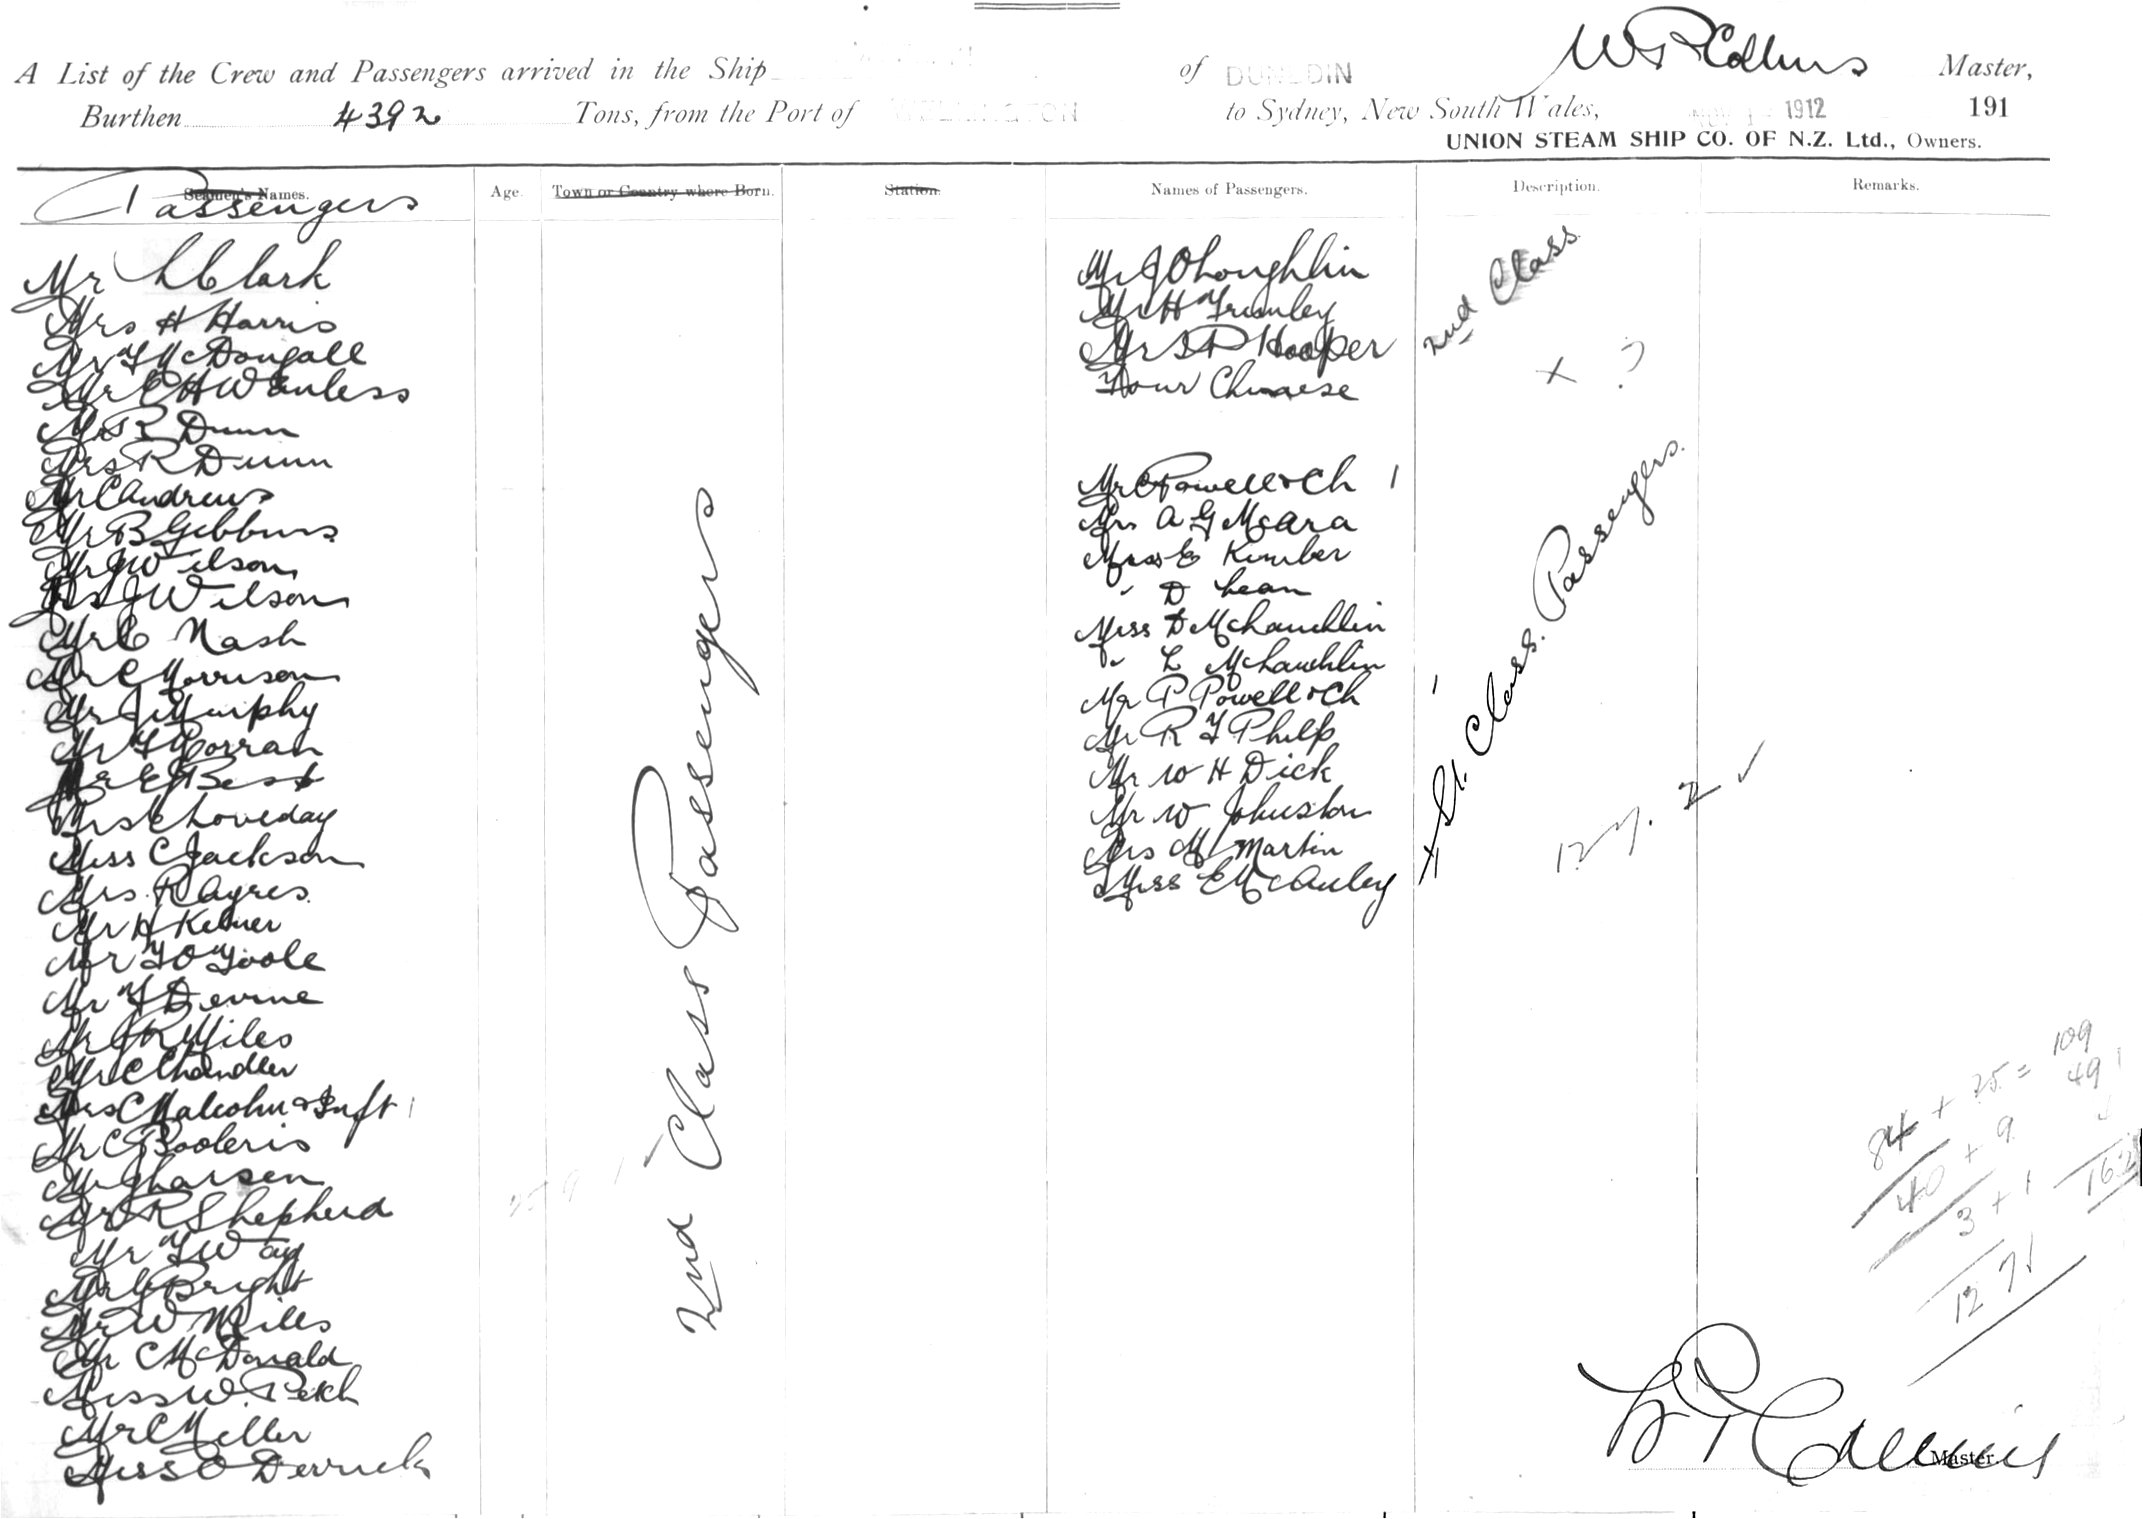 A List of the Crew and Passengers arrived in the Ship of DUNEDIN W P Collins Master,
Burthen 4392 Tons, from the Port of WELLINGTON to Sydney, New South Wales, NOV 1912 191
UNION STEAM SHIP CO. OF N.Z. Ltd., Owners.
Seamen's Names. Age. Town or Country where Born. Station. Names of Passengers. Description. Remarks.
Passengers
Mr L Clark
Mrs H Harris
Mr T McDougall
Mr C H Wanless
Mr R Dunn
Mrs R Dunn
Mr C Andrews
Mr B Gibbons
Mr J Wilson
Mrs J Wilson
Mr C Nash
Mr C Morrison
Mr J Murphy
Mr T Corran
Mr E Best
Mrs Loveday
Miss C Jackson
Mrs R Ayres
Mr H Kelner
Mr T O'Toole
Mr T Devine
Mr J R Miles
Mr C Chandler
Mrs C Malcolm & Inft 1
Mr C
Mr J Larsen
Mr R Shepherd
Mr T Way
Mr C Bright
Mr W Miles
Mr C McDonald
Miss W. Petch
Mr C Miller
Miss O Derrick
2nd Class Passengers
25 9 1 ✓
Mr J O'Loughlin
Mr H Trimley
Mr S P Hooper
Four Chinese
2nd Class
x
Mr C Powell & Ch 1
Mrs A G McAra
Miss E Kimber
" D Lean
Miss D McLauchlin
" L McLauchlin
Mr P Powell & Ch 1
Mr R T Philp
Mr W H Dick
Mr W Johnston
Mrs M Martin
Miss E McAuley
x St. Class. Passengers.
127. 2 ✓
84 + 25 = 109
40 + 9 49
3 + 1
162
127
W P Collins
Master.